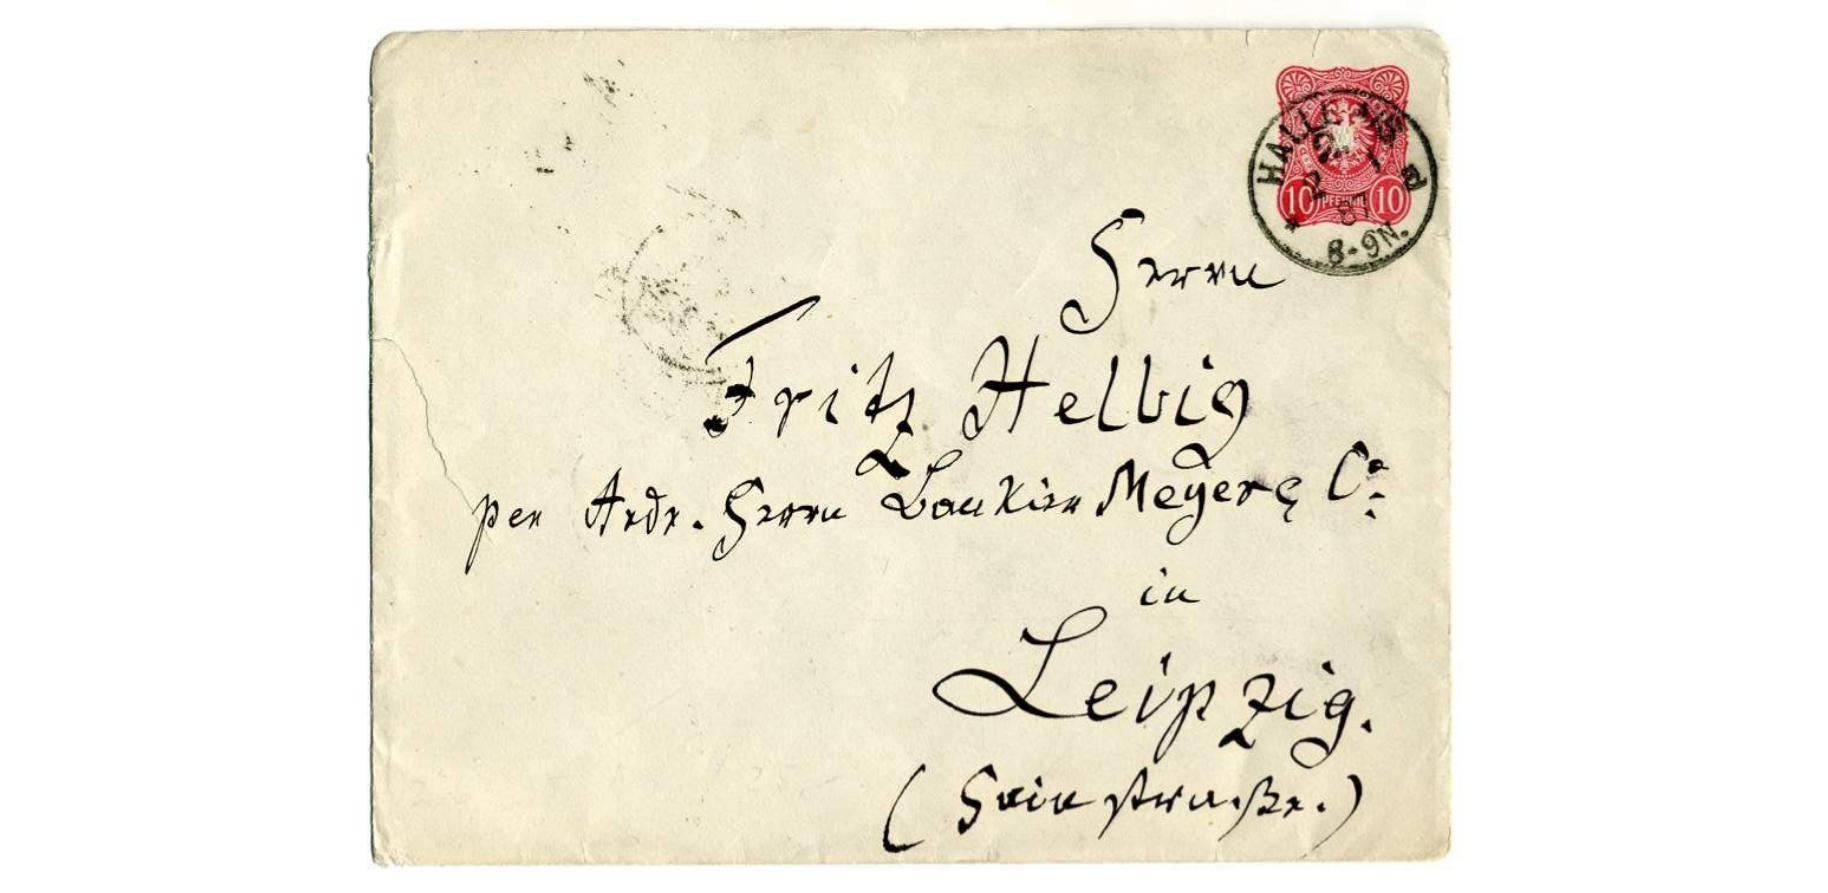 HALLE A/S
2 1
87
8-9N.
10 PFENNIG 10
Herrn
Fritz Helbig
per Adr. Herrn Bankier Meyer & Co.
in
Leipzig.
(Hainstraße.)